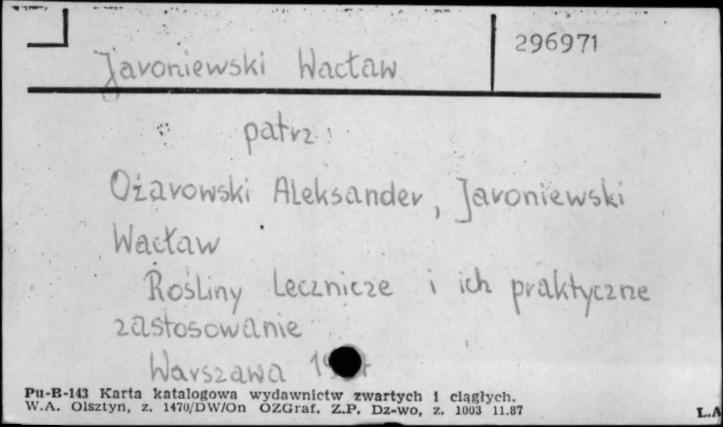 296971
Jaroniewski Wacław
patrz:
Ożarowski Aleksander, Jaroniewski
Wacław
Rośliny Lecznicze i ich praktyczne
zastosowanie
Warszawa
Pu-B-143 Karta katalogowa wydawnictw zwartych i ciągłych.
W.A. Olsztyn, z. 1470/DW/On OZGraf. Z.P. Dz-wo, z. 1003 11.87
L.A